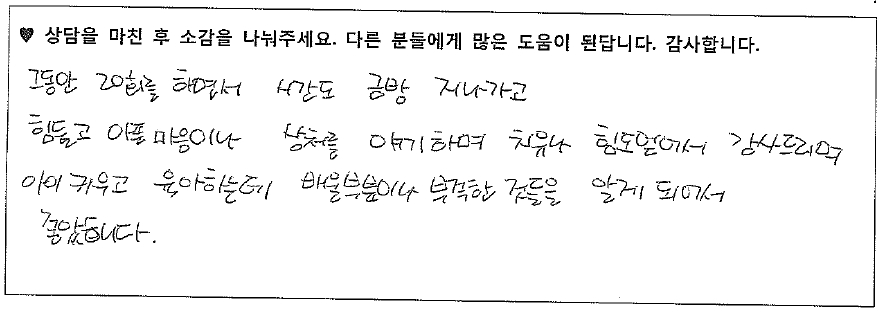 ♥ 상담을 마친 후 소감을 나눠주세요. 다른 분들에게 많은 도움이 된답니다. 감사합니다.
그동안 20회를 하면서 시간도 금방 지나가고
힘들고 아플 마음이나 상처를 얘기하며 치유나 힘도얻어서 감사드리며
아이 키우고 육아하는데 배울부분이나 부족한 것들을 알게 되어서
좋았습니다.